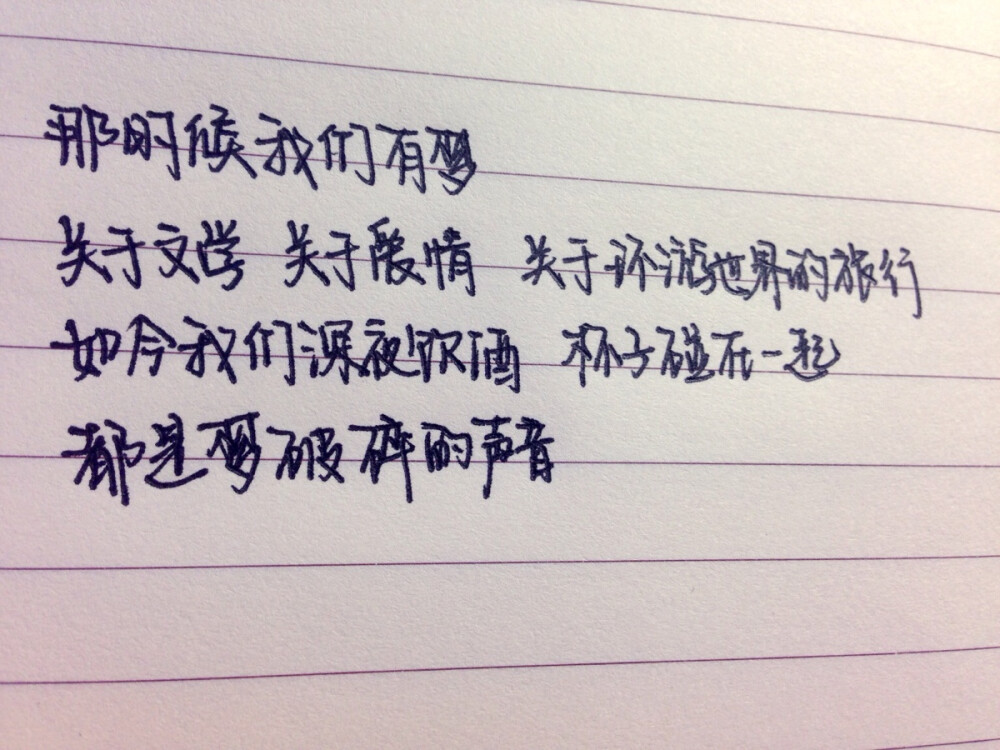 那时候我们有梦
关于文学 关于爱情 关于环游世界的旅行
如今我们深夜饮酒 杯子碰在一起
都是梦破碎的声音